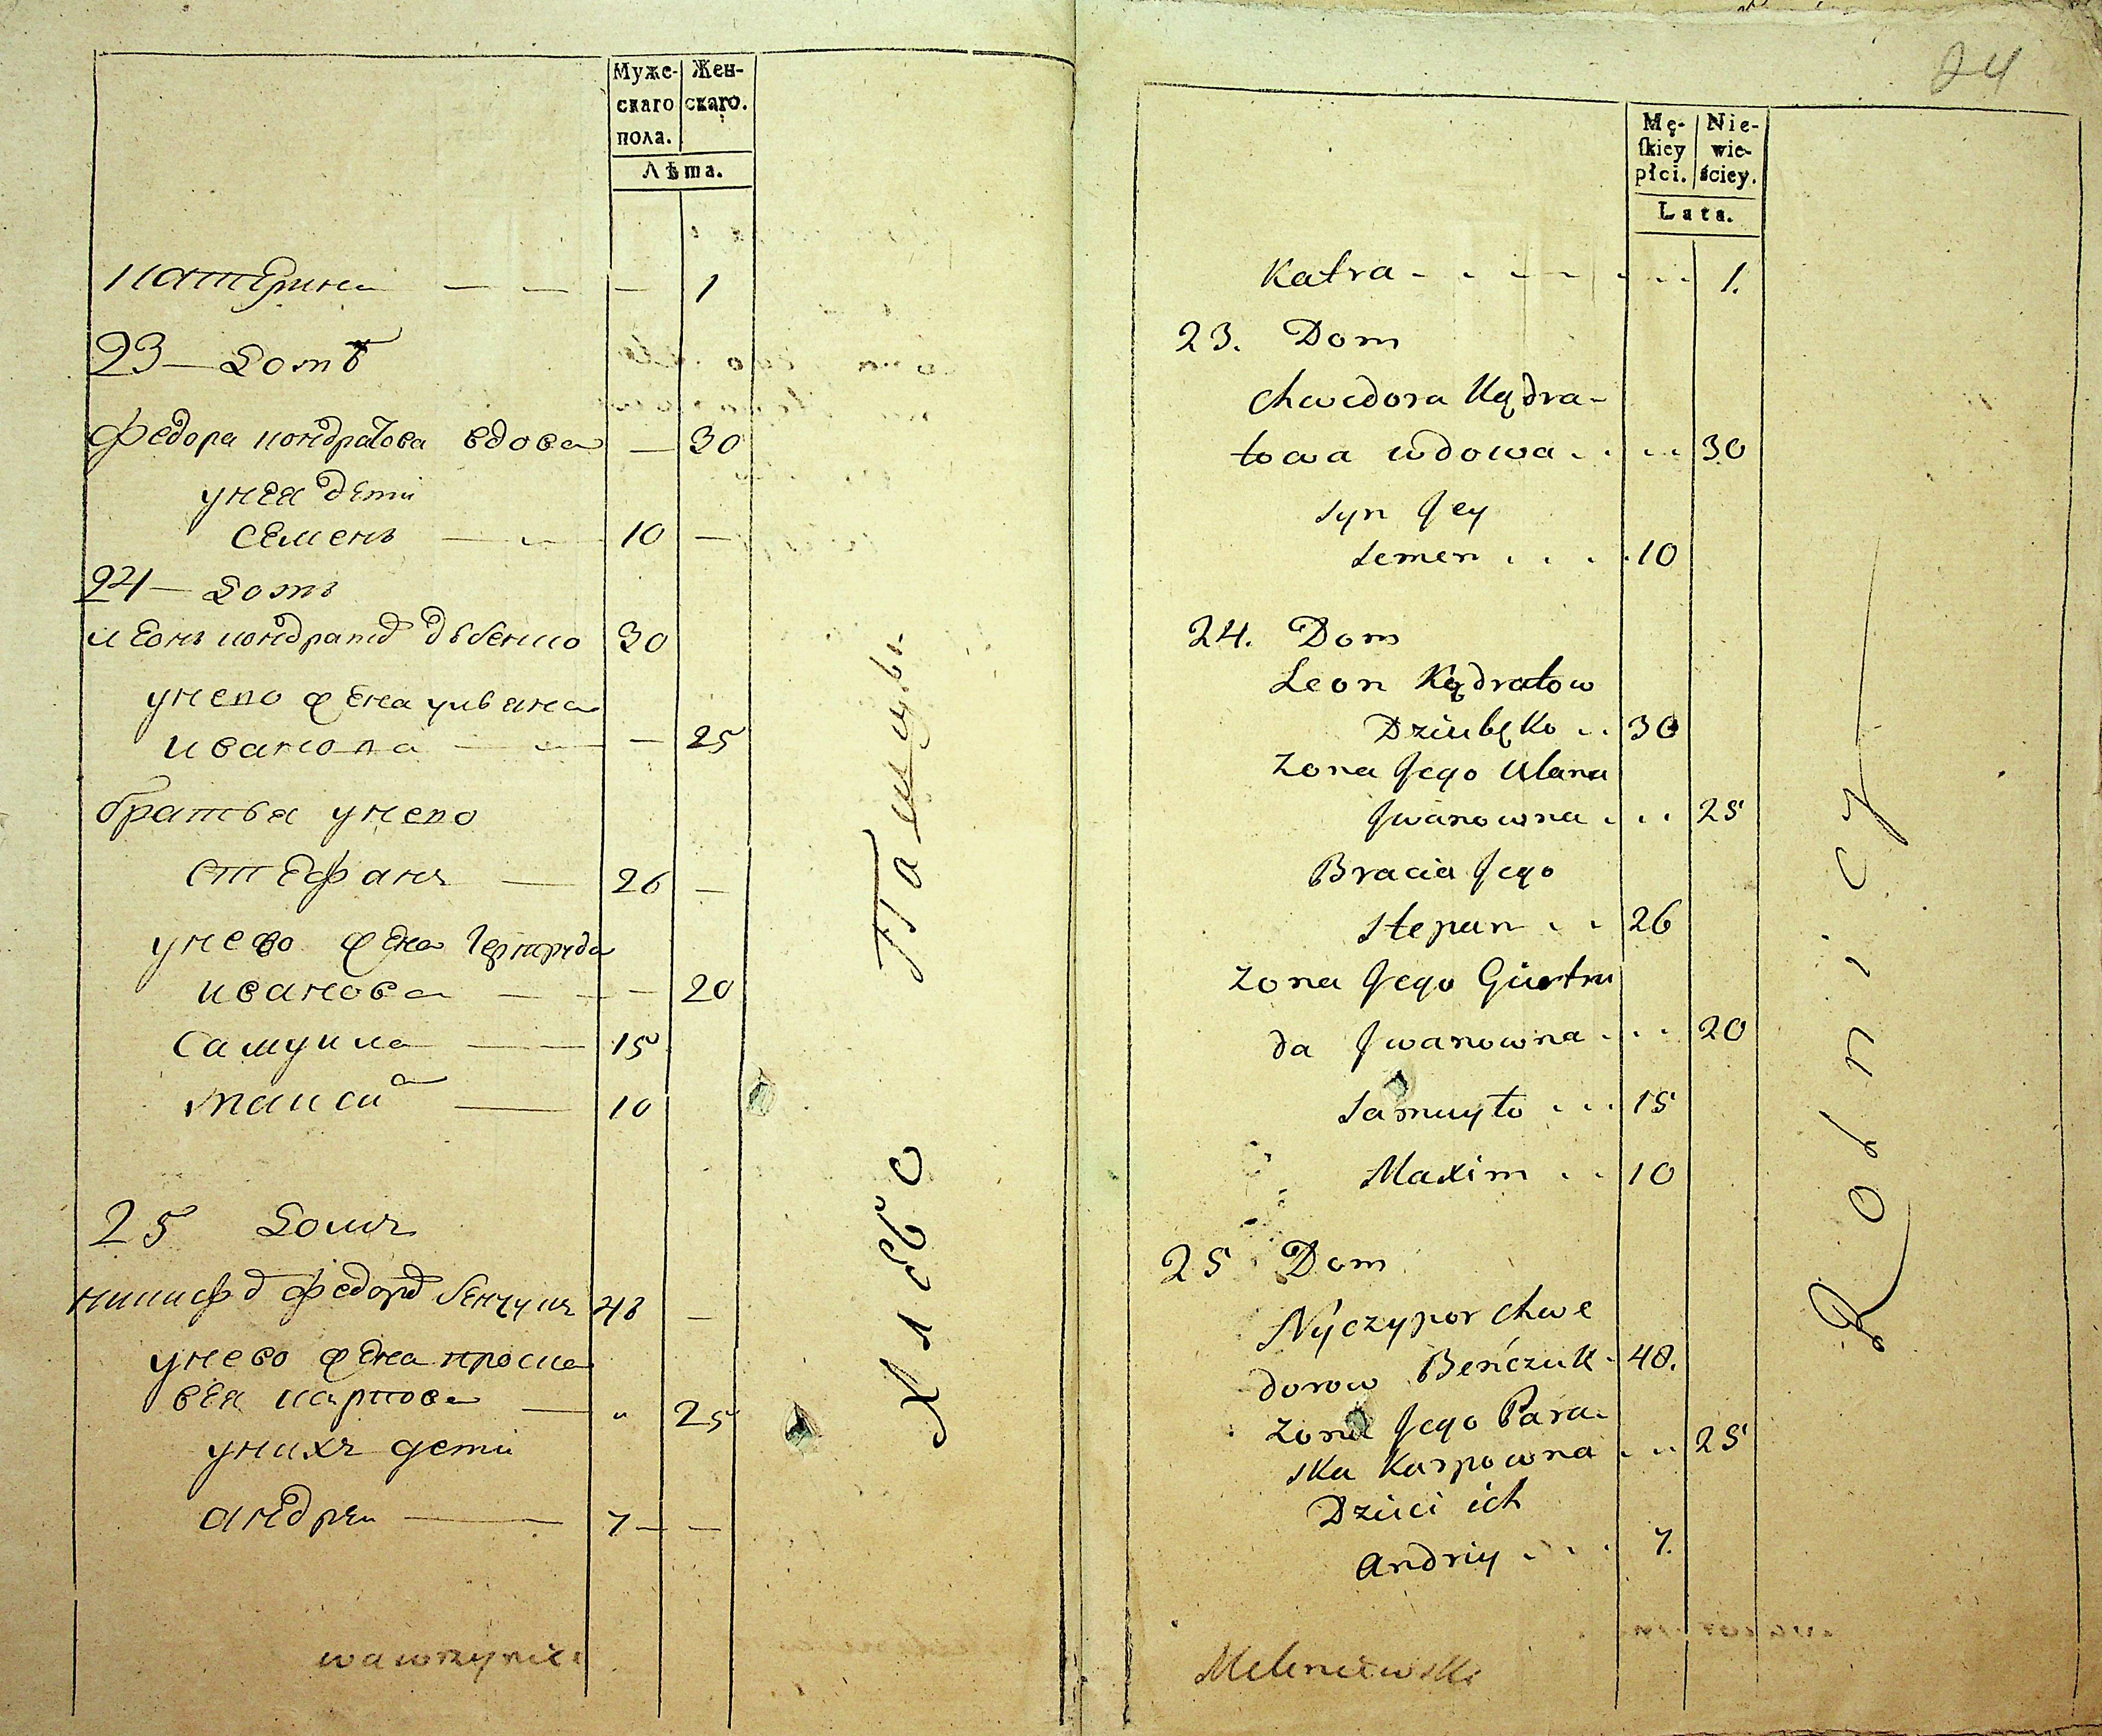 Муже-
скаго
пола.
Жен-
скаго.
Лѣта.
Катерина — — — 1
23 — Домъ
Федора кондратова вдова — 30
унея дети
Семенъ — — 10 —
24 — Домъ
Леонъ кондратов дзбенко 30
унего жена ульяна
Иванова — — — 25
братья унего
Стефанъ — 26 —
унево жена Гертруда
иванова — — — 20
Самуила — 15
Максим — 10
25 Домъ
никифор федоров бенчукъ 48 —
унево жена проске
вея карпова — " 25
унихъ дети
андреи — 7 — —
Хлебо Пашцы
wawrzyniec
24
Mę-
skiey
płci.
Nie-
wie-
ściey.
Lata.
Katra - - - - - - - 1.
23. Dom
Chwedora Kądra-
towa wdowa . . . . 30
syn Jey
Semen . . . . 10
24. Dom
Leon Kądratow
Dziubęko . . 30
Zona Jego Ulana
Jwanowna . . . 25
Bracia Jego
Stepan . . 26
Zona Jego Giertru
da Jwanowna . . . 20
Samuyło . . . 15
Maxim . . 10
25 Dom
Nyczypor Chwe
dorow Beńczuk . 48.
Zona Jego Para-
ska Karpowna . . . 25
Dzieci ich
Andriy . . . 7.
Rolnicy
Meleniewski